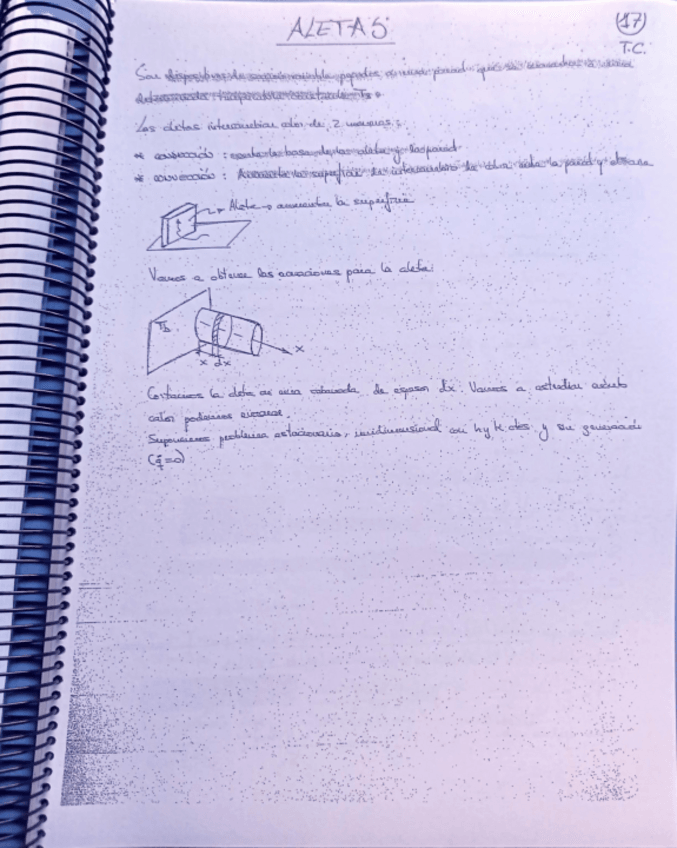 ALETAS
17
T.C.
Son dispositivos de sección variable pegados a una pared que se encuentra a
determinada temperatura T_b.
Las aletas intercambian calor de 2 maneras:
* conducción: entre la base de la aleta y la pared.
* convección: Aumenta la superficie de intercambio de calor entre la pared y
Aleta → aumentar la superficie
Vamos a obtener las ecuaciones para la aleta:
T_b
x
dx
x
Cortamos la aleta en una rebanada de espesor dx. Vamos a estudiar cuánto
calor podemos evacuar.
Suponemos problema estacionario, unidimensional con h y k ctes. y sin generación
(q̇=0)